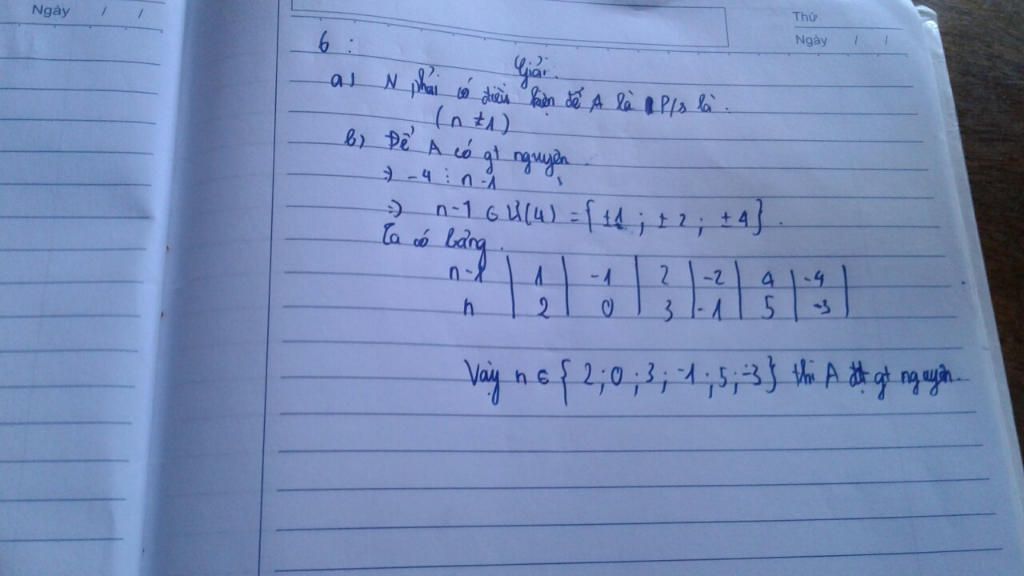 Ngày / /
Thứ
Ngày / /
6 :
Giải.
a) N phải có điều kiện để A là P/s là.
(n ≠ 1)
b) Để A có gt nguyên.
=> -4 ⋮ n-1
=> n-1 ∈ Ư(4) = { ±1 ; ±2 ; ±4 }.
Ta có bảng.
n-1 | 1 | -1 | 2 | -2 | 4 | -4 |
n | 2 | 0 | 3 | -1 | 5 | -3 |
Vậy n ∈ { 2; 0 ; 3 ; -1 ; 5 ; -3 } thì A đạt gt nguyên.